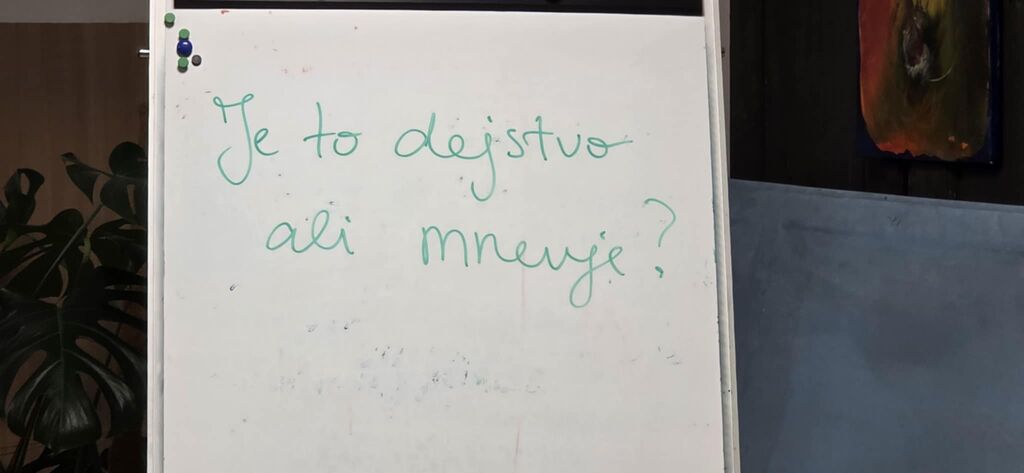 Je to dejstvo
ali mnenje?